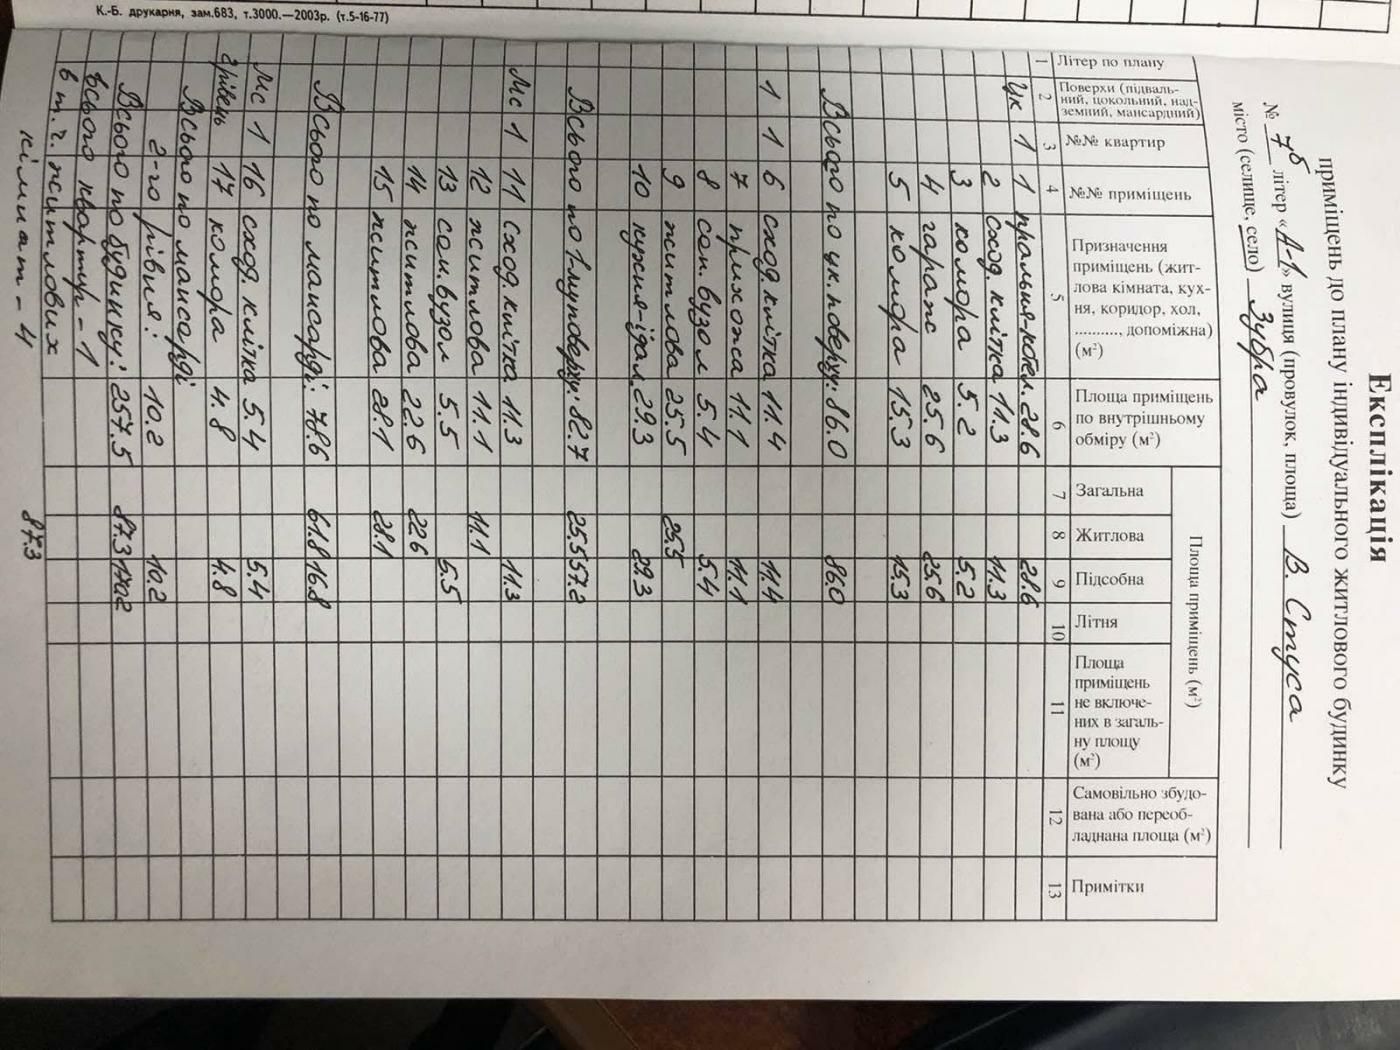 К.-Б. друкарня, зам.683, т.3000.—2003р. (т.5-16-77)
Експлікація
приміщень до плану індивідуального житлового будинку
№ 7б літер «А-1» вулиця (провулок, площа) В. Стуса
місто (селище, село) Зубра
Літер по плану
Поверхи (підваль-
ний, цокольний, над-
земний, мансардний)
№№ квартир
№№ приміщень
Призначення
приміщень (жит-
лова кімната, кух-
ня, коридор, хол,
..........., допоміжна)
(м²)
Площа приміщень
по внутрішньому
обміру (м²)
Площа приміщень (м²)
Загальна
Житлова
Підсобна
Літня
Площа
приміщень
не включе-
них в загаль-
ну площу
(м²)
Самовільно збудо-
вана або переоб-
ладнана площа (м²)
Примітки
1 2 3 4 5 6 7 8 9 10 11 12 13
Цк 1 1 пральня-котел. 28.6 28.6
2 сход. клітка 11.3 11.3
3 комора 5.2 5.2
4 гараж 25.6 25.6
5 комора 15.3 15.3
Всього по цк. поверху: 86.0 86.0
1 1 6 сход. клітка 11.4 11.4
7 прихожа 11.1 11.1
8 сан. вузол 5.4 5.4
9 житлова 25.5 25.5
10 кухня-їдал. 29.3 29.3
Всього по 1 му поверху: 82.7 25.5 57.2
Мс 1 11 Сход. клітка 11.3 11.3
12 житлова 11.1 11.1
13 сан. вузол 5.5 5.5
14 житлова 22.6 22.6
15 житлова 28.1 28.1
Всього по мансарді: 78.6 61.8 16.8
Мс 1 16 сход. клітка 5.4 5.4
2 рівень 17 комора 4.8 4.8
Всього по мансарді
2-го рівня: 10.2 10.2
Всього по будинку: 257.5 87.3 170.2
Всього квартир - 1
в т. ч. житлових
кімнат - 4 87.3